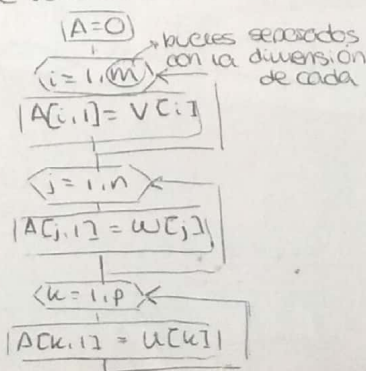 A=0
i=1,m
bucles separados
con la dimensión
de cada
A[i,1]=V[i]
j=1,n
A[j,1]=W[j]
k=1,p
A[k,1]=U[k]